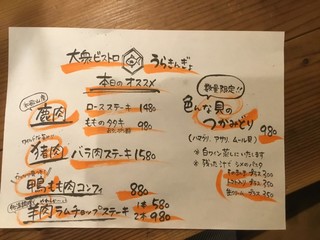 大衆ビストロ うらきんぎょ
本日のオススメ
鹿肉 ロースステーキ 1480
もものタタキ 980
猪肉 バラ肉ステーキ 1580
鴨もも肉コンフィ 880
羊肉 ラムチョップステーキ 1本 580
2本 980
数量限定!!
色んな貝の
つかみどり 980
(ハマグリ、アサリ、ムール貝)
※白ワイン蒸しにいたします
※残った汁で〆のパスタ